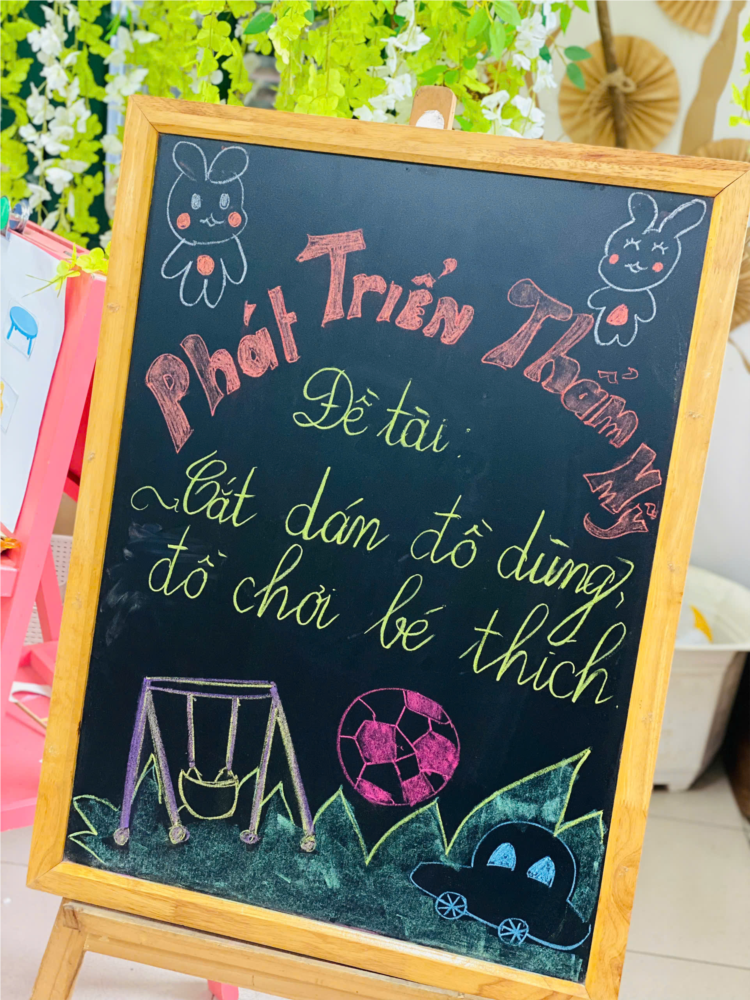 Phát Triển Thẩm Mỹ
Đề tài:
Cắt dán đồ dùng,
đồ chơi bé thích.